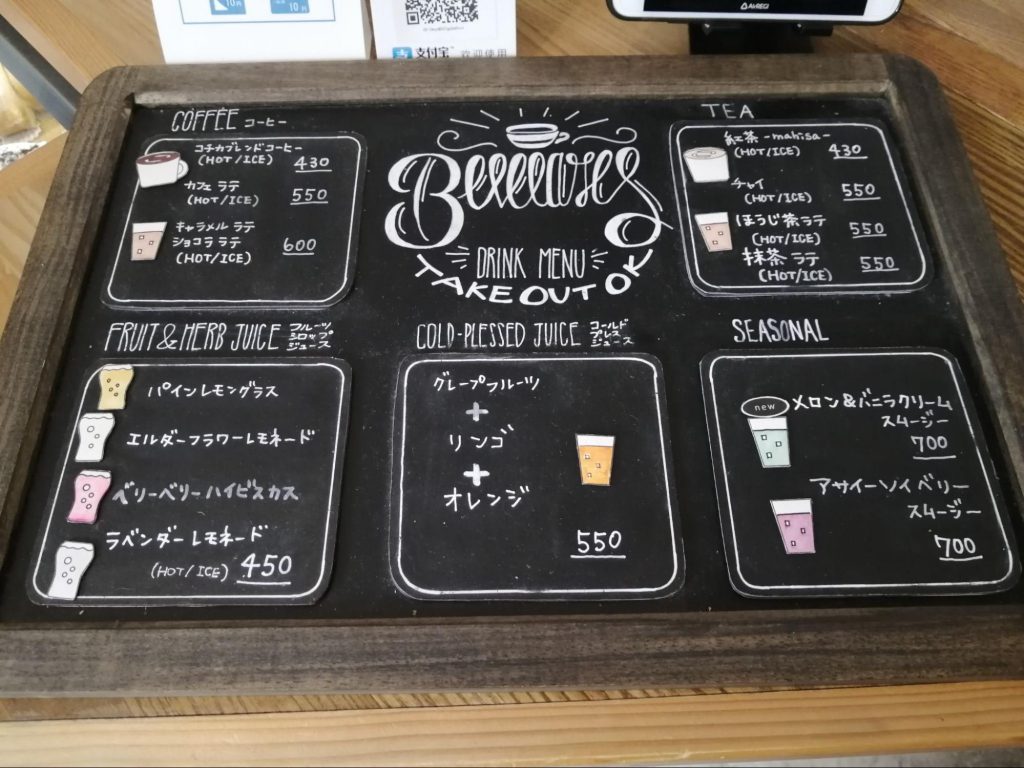 10円
10円
支付宝™
欢迎使用
AirREGI
COFFEE コーヒー
コチカブレンドコーヒー
(HOT/ICE) 430
カフェ ラテ
(HOT/ICE) 550
キャラメル ラテ
ショコラ ラテ 600
(HOT/ICE)
DRINK MENU
TAKE OUT OK
TEA
紅茶 -mahisa-
(HOT/ICE) 430
チャイ
(HOT/ICE) 550
ほうじ茶ラテ
(HOT/ICE) 550
抹茶 ラテ
(HOT/ICE) 550
FRUIT & HERB JUICE フルーツ
シロップ
ジュース
パインレモングラス
エルダーフラワーレモネード
ベリーベリーハイビスカス
ラベンダーレモネード
(HOT/ICE) 450
COLD-PLESSED JUICE コールド
プレス
ジュース
グレープフルーツ
+
リンゴ
+
オレンジ
550
SEASONAL
new メロン&バニラクリーム
スムージー
700
アサイーソイベリー
スムージー
700